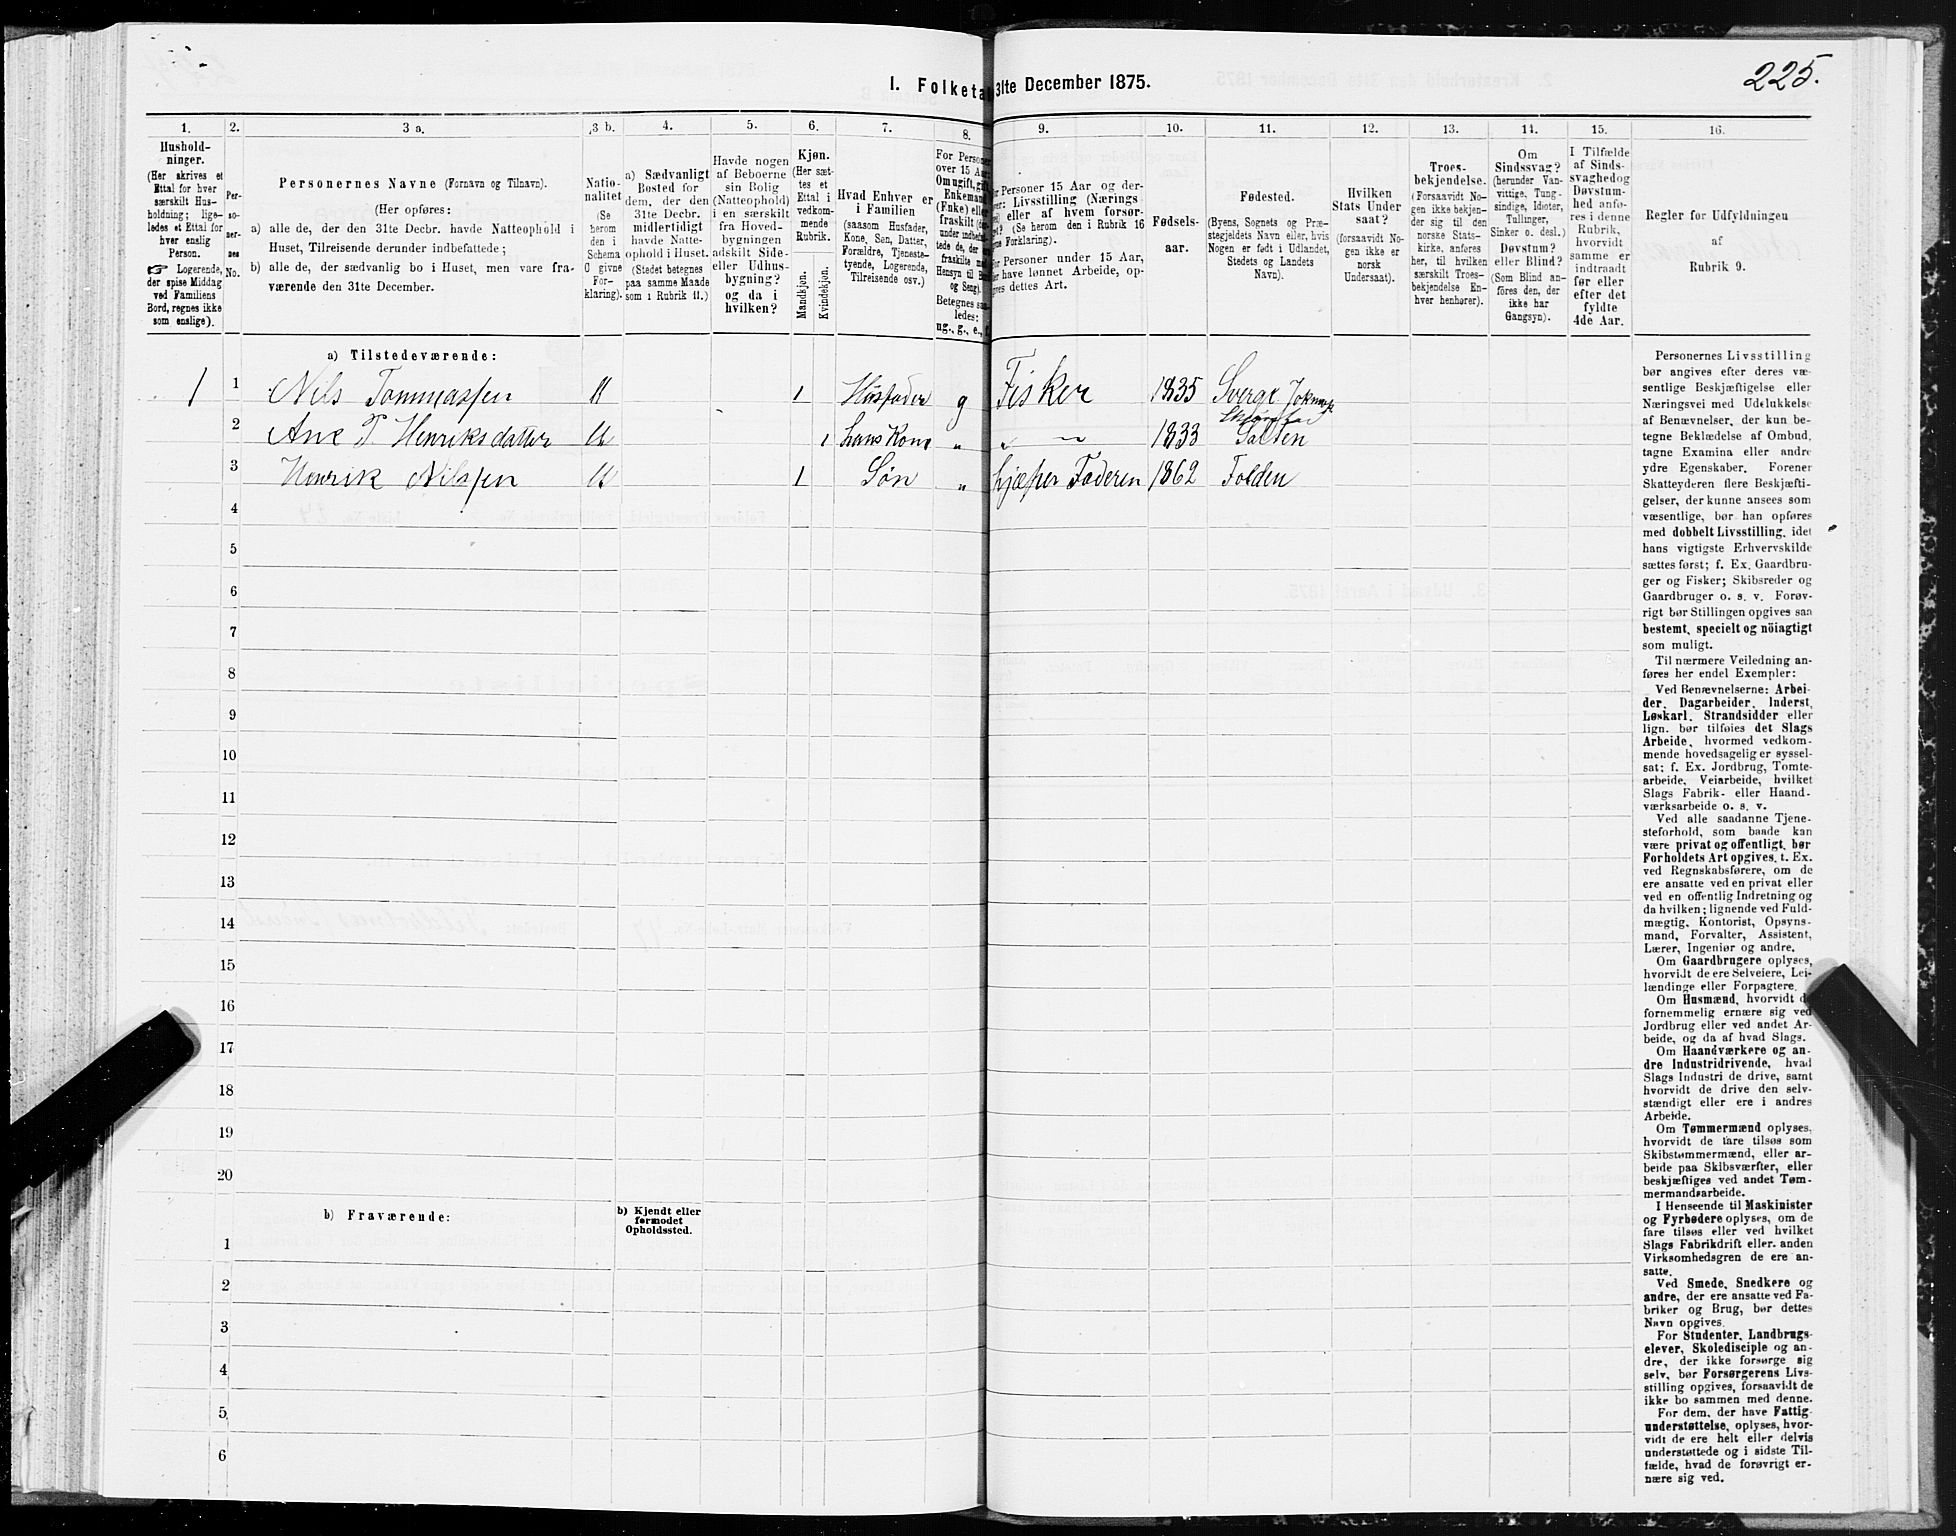 225.
I. Folketa 31te December 1875.
1. 2. 3 a. 3 b. 4. 5. 6. 7. 8. 9. 10. 11. 12. 13. 14. 15. 16.
Hushold-
ninger.
(Her skrives et
Ettal for hver
særskilt Hus-
holdning; lige-
ledes et Ettal for
hver enslig
Person.
☞ Logerende,
der spise Middag
ved Familiens
Bord, regnes ikke
som enslige).
Per-
so-
ner-
nes
No.
Personernes Navne (Fornavn og Tilnavn).
(Her opføres:
a) alle de, der den 31te Decbr. havde Natteophold i
Huset, Tilreisende derunder indbefattede;
b) alle de, der sædvanlig bo i Huset, men vare fra-
værende den 31te December.
Natio-
nalitet
(Se
herom
den i
Schema
O givne
For-
klaring).
a) Sædvanligt
Bosted for
dem, der den
31te Decbr.
midlertidigt
havde Natte-
ophold i Huset.
(Stedet betegnes
paa samme Maade
som i Rubrik 11.)
Havde nogen
af Beboerne
sin Bolig
(Natteophold)
i en særskilt
fra Hoved-
bygningen
adskilt Side-
eller Udhus-
bygning?
og da i
hvilken?
Kjøn.
(Her sæt-
tes et
Ettal i
vedkom-
mende
Rubrik.
Mandkjøn.
Kvindekjøn.
Hvad Enhver er
i Familien
(saasom Husfader,
Kone, Søn, Datter,
Forældre, Tjeneste-
tyende, Logerende,
Tilreisende osv.)
For Personer
over 15 Aar:
Om ugift, gift,
Enkemand
(Enke) eller
fraskilt
under indbefat-
tede de, der
fraskilte med
Hensyn til Bord
og Seng).
Betegnes saa-
ledes:
ug., g., e., f.
Personer 15 Aar og der-
over: Livsstilling (Nærings
eller af hvem forsør-
get? (Se herom den i Rubrik 16
Forklaring).
Personer under 15 Aar,
have lønnet Arbeide, op-
gives dettes Art.
Fødsels-
aar.
Fødested.
(Byens, Sognets og Præ-
stegjeldets Navn eller, hvis
Nogen er født i Udlandet,
Stedets og Landets
Navn).
Hvilken
Stats Under
saat?
(forsaavidt No-
gen ikke er
norsk
Undersaat).
Troes-
bekjendelse.
(Forsaavidt No-
gen ikke bekjen-
der sig til den
norske Stats-
kirke, anføres
her, til hvilken
særskilt Troes-
bekjendelse En-
hver henhører).
Om
Sindssvag?
(herunder Van-
vittige, Tung-
sindige, Idioter,
Tullinger,
Sinker o. desl.)
Døvstum?
eller Blind?
(Som Blind an-
føres den, der
ikke har
Gangsyn).
I Tilfælde
af Sinds-
svaghed og
Døvstum-
hed anfø-
res i denne
Rubrik,
hvorvidt
samme er
indtraadt
før eller
efter det
fyldte
4de Aar.
Regler for Udfyldningen
af
Rubrik 9.
a) Tilstedeværende:
1 1 Nils Tommassen 1 Husfader g Fisker 1835 Sverge
2 Ane P Henriksdatter 1 hans Kone " " — 1833 Salten
3 Henrik Nilssen 1 Søn " hjælper Faderen 1862 Folden
4
5
6
7
8
9
10
11
12
13
14
15
16
17
18
19
20
b) Fraværende:
b) Kjendt eller
formodet
Opholdssted.
1
2
3
4
5
6
Personernes Livsstilling
bør angives efter deres væ-
sentlige Beskjæftigelse eller
Næringsvei med Udelukkelse
af Benævnelser, der kun be-
tegne Beklædelse af Ombud,
tagne Examina eller andre
ydre Egenskaber. Forener
Skatteyderen flere Beskjæfti-
gelser, der kunne ansees som
væsentlige, bør han opføres
med dobbelt Livsstilling, idet
hans vigtigste Erhvervskilde
sættes først; f. Ex. Gaardbru-
ger og Fisker; Skibsreder og
Gaardbruger o. s. v. Forøv-
rigt bør Stillingen opgives saa
bestemt, specielt og nöiagtigt
som muligt.
Til nærmere Veiledning an-
føres her endel Exempler:
Ved Benævnelserne: Arbei-
der, Dagarbeider, Inderst,
Løskarl, Strandsidder eller
lign. bør tilføies det Slags
Arbeide, hvormed vedkom-
mende hovedsagelig er syssel-
sat; f. Ex. Jordbrug, Tomte-
arbeide, Veiarbeide, hvilket
Slags Fabrik- eller Haand-
værksarbeide o. s. v.
Ved alle saadanne Tjene-
steforhold, som baade kan
være privat og offentligt, bør
Forholdets Art opgives, t. Ex.
ved Regnskabsførere, om de
ere ansatte ved en privat eller
ved en offentlig Indretning og
da hvilken; lignende ved Fuld-
mægtig, Kontorist, Opsyns-
mand, Forvalter, Assistent,
Lærer, Ingeniør og andre.
Om Gaardbrugere oplyses,
hvorvidt de ere Selveiere, Lei-
lændinge eller Forpagtere.
Om Husmænd, hvorvidt d
fornemmelig ernære sig ved
Jordbrug eller ved andet Ar-
beide, og da af hvad Slags.
Om Haandværkere og an-
dre Industridrivende, hvad
Slags Industri de drive, samt
hvorvidt de drive den selv-
stændigt eller ere i andres
Arbeide.
Om Tømmermænd oplyses,
hvorvidt de fare tilsøs som
Skibstømmermænd, eller ar-
beide paa Skibsværfter, eller
beskjæftiges ved andet Tøm-
mermandsarbeide.
I Henseende til Maskinister
og Fyrbødere oplyses, om de
fare tilsøs eller ved hvilket
Slags Fabrikdrift eller anden
Virksomhedsgren de ere an-
satte.
Ved Smede, Snedkere og
andre, der ere ansatte ved Fa-
briker og Brug, bør dettes
Navn opgives.
For Studenter, Landbrugs-
elever, Skoledisciple og an-
dre, der ikke forsørge sig
selv, bør Forsørgerens Livs-
stilling opgives, forsaavidt de
ikke bo sammen med denne.
For dem, der have Fattig-
understøttelse, oplyses, hvor-
vidt de ere helt eller delvis
understøttede og i sidste Til-
fælde, hvad de forøvrigt er-
nære sig ved.